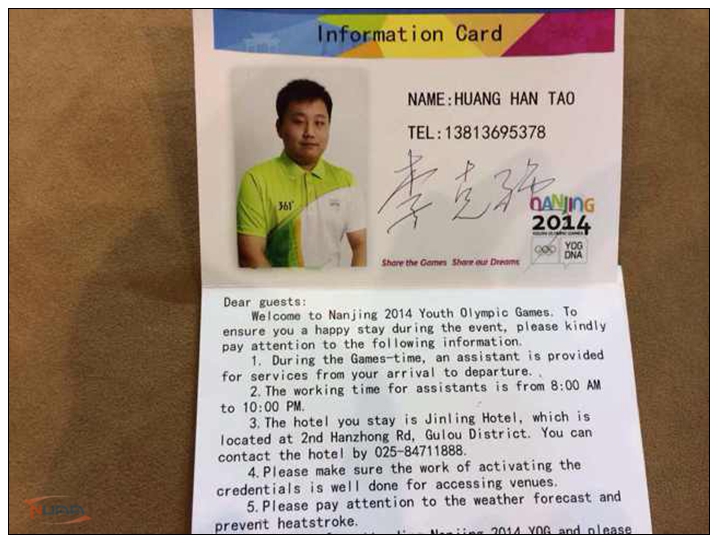 Information Card
NAME:HUANG HAN TAO
TEL:13813695378
361°
李克强
NANJING
2014
YOUTH OLYMPIC GAMES
YOG
DNA
Share the Games Share our Dreams
Dear guests:
Welcome to Nanjing 2014 Youth Olympic Games. To
ensure you a happy stay during the event, please kindly
pay attention to the following information.
1. During the Games-time, an assistant is provided
for services from your arrival to departure.
2. The working time for assistants is from 8:00 AM
to 10:00 PM.
3. The hotel you stay is Jinling Hotel, which is
located at 2nd Hanzhong Rd, Gulou District. You can
contact the hotel by 025-84711888.
4. Please make sure the work of activating the
credentials is well done for accessing venues.
5. Please pay attention to the weather forecast and
prevent heatstroke.
Nanjing 2014 YOG and please